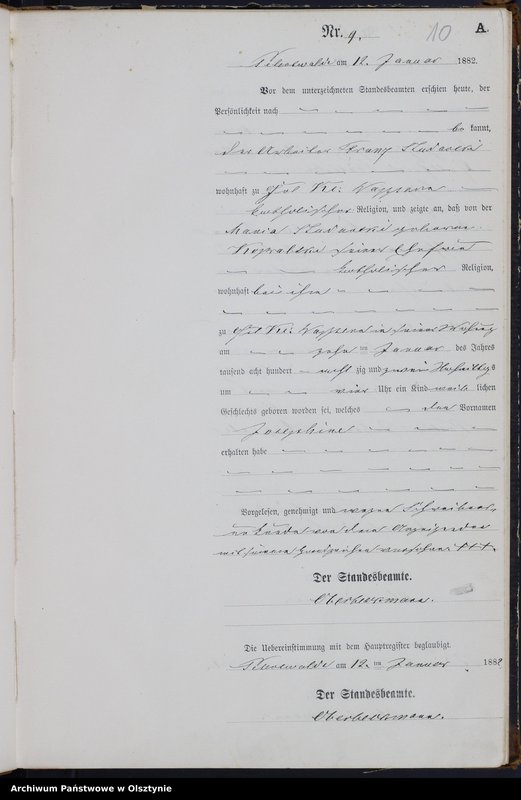 Nr. 9.
10
A.
am 12. Januar 1882.
Vor dem unterzeichneten Standesbeamten erschien heute, der
Persönlichkeit nach
be kannt,
der Arbeiter Franz
wohnhaft zu Gut Kl:
katholischer Religion, und zeigte an, daß von der
Maria geborne
Kowalski seiner Ehefrau
katholischer Religion,
wohnhaft bei ihm
zu Gut Kl: in seiner Wohnung
am zehn ten Januar des Jahres
tausend acht hundert acht zig und zwei Nachmittags
um vier Uhr ein Kind weib lichen
Geschlechts geboren worden sei, welches den Vornamen
Josephine
erhalten habe
Vorgelesen, genehmigt und wegen Schreibens
unkunde von dem Anzeigenden
mit seinem Handzeichen versehen. +++.
Der Standesbeamte.
Die Uebereinstimmung mit dem Hauptregister beglaubigt.
am 12. ten Januar 1882
Der Standesbeamte.
Archiwum Państwowe w Olsztynie